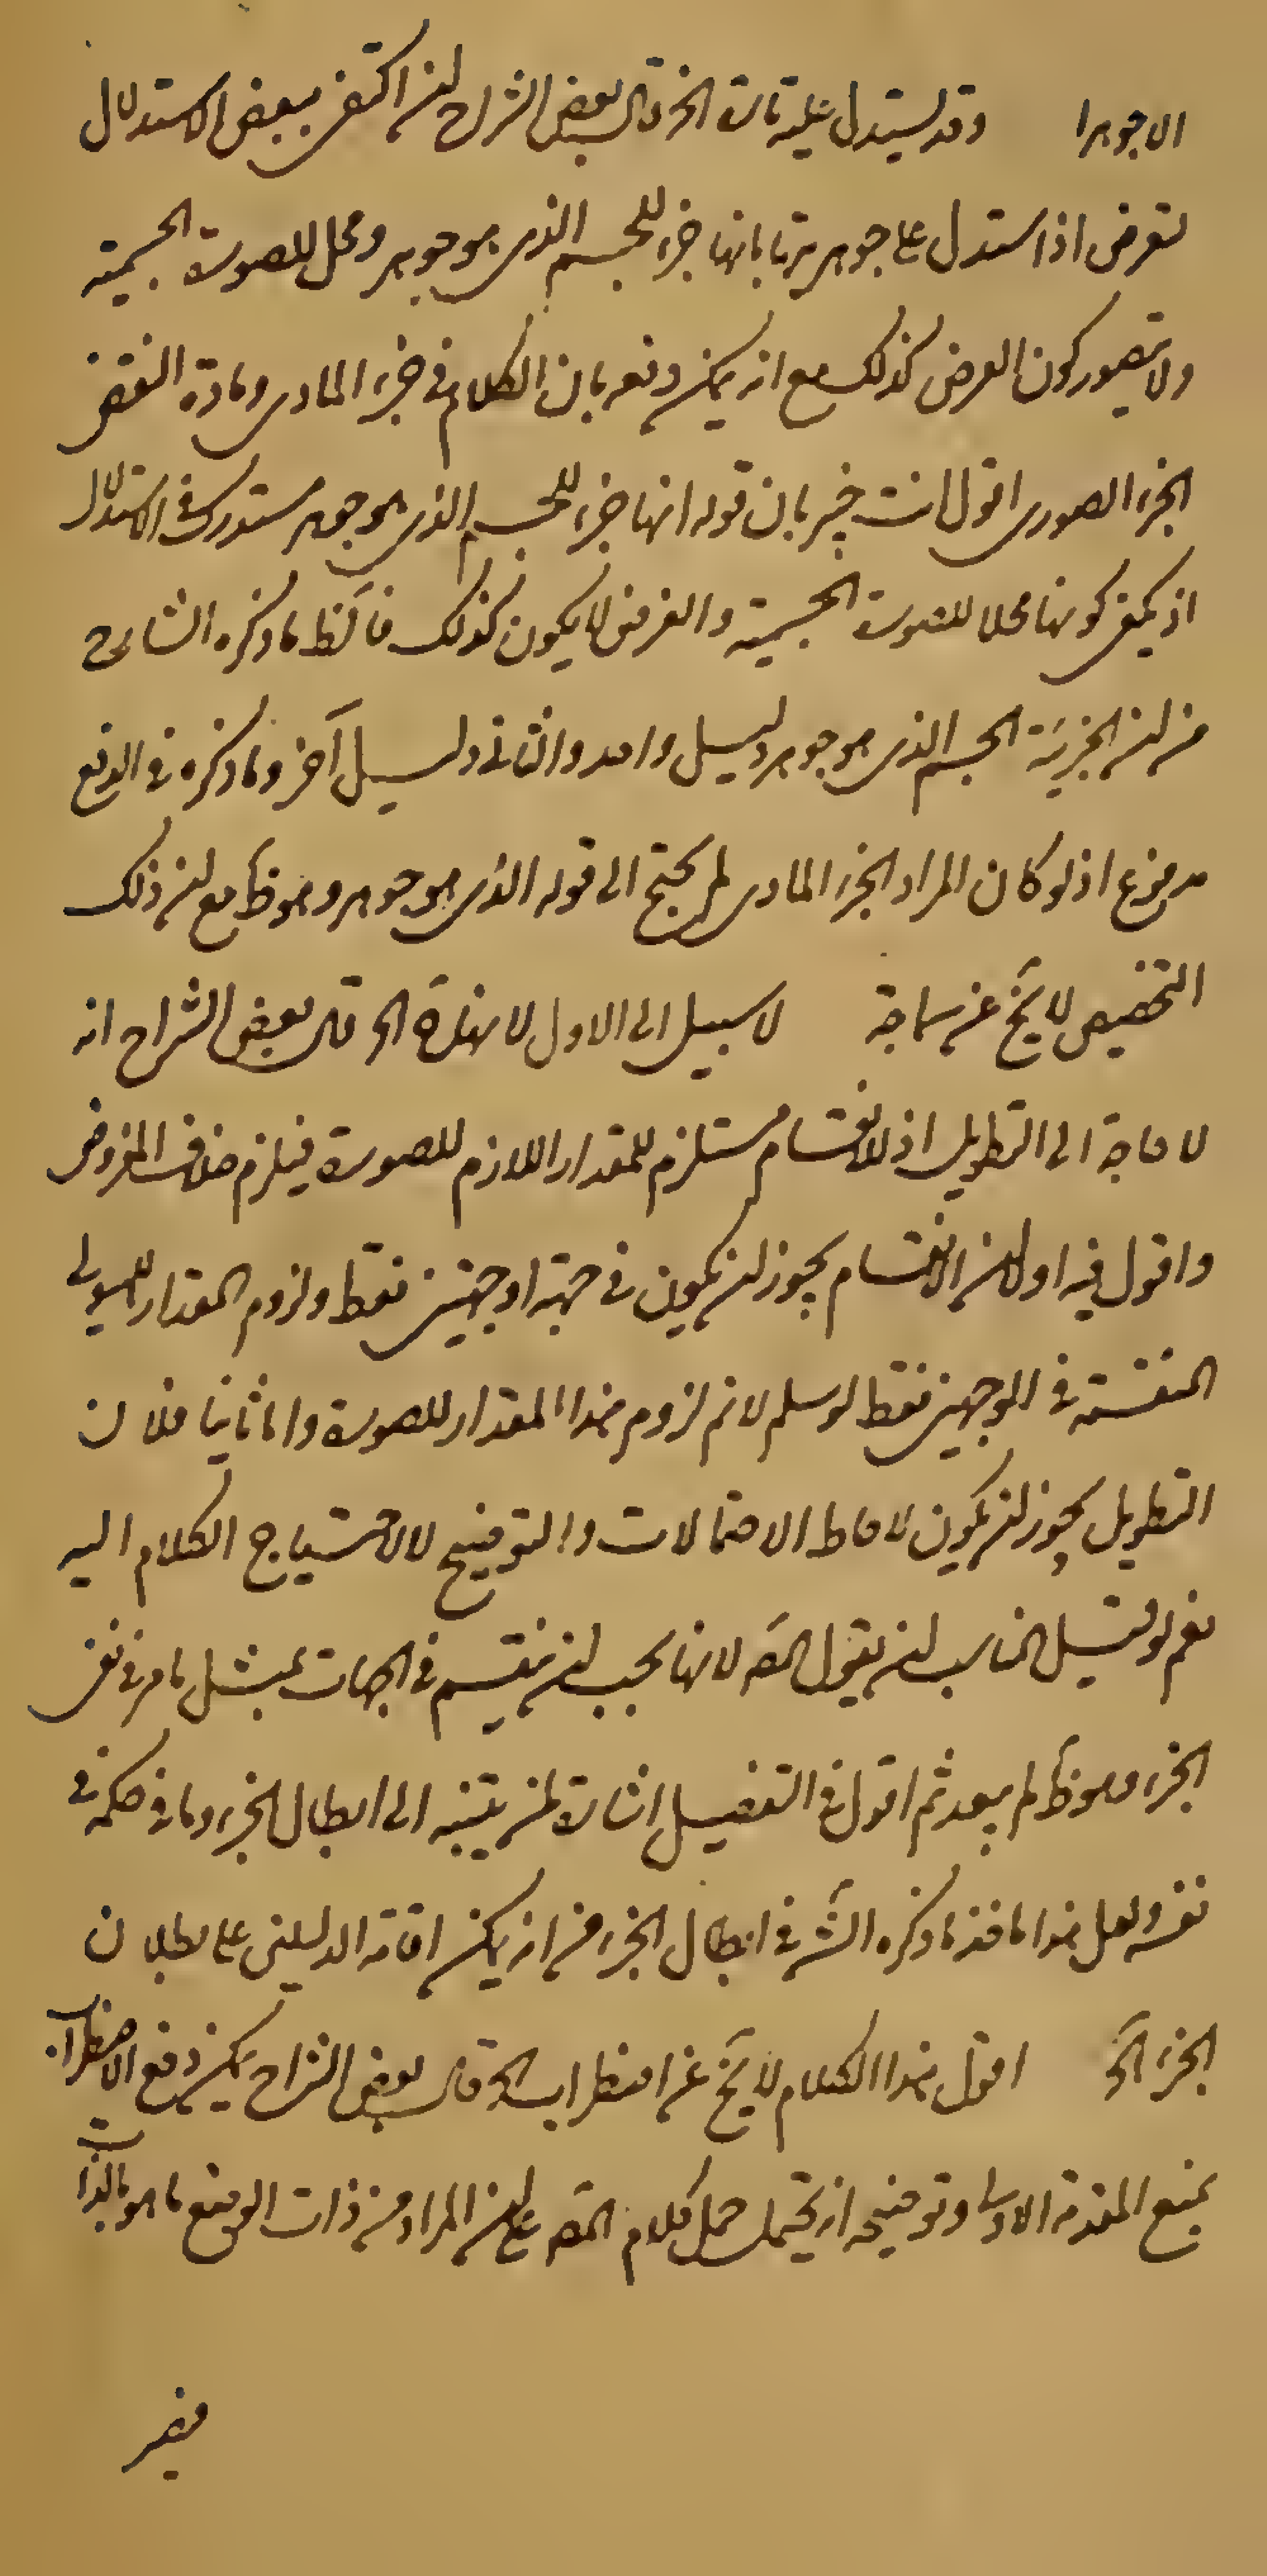 الا جوهرا وقد يستدل عليه تارة الخ قال بعض الشراح لنه اكتفى ببعض الاستدلال
لتعرض اذا استدل على جوهريتها بانها جزء للجسم الذى هو جوهر ومحل للصورة الجسمية
ولا يتصور كون العرض كذلك مع انه يمكن دفعه بان الكلام فى جزء المادى ومادة النقض
الجزء الصورى اقول انت خبير بان قوله انها جزء للجسم الذى هو جوهر مستدرك فى الاستدلال
اذ يكفى كونها محلا للصورة الجسمية والعرض لا يكون كذلك فالظ ما ذكره الشارح
من لنه الجزئية الجسم الذى هو جوهر دليل واحد والثانى دليل آخر وما ذكره فى الدفع
مدفوع اذ لو كان المراد الجزء المادى لم يحتج الى قوله الذى هو جوهر وهو ظ مع لنه ذلك
التخصيص لا يخ عن سماجة لا سبيل الى الاول لانها ة الخ قال بعض الشراح انه
لا حاجة الى التطويل اذ الانقسام مستلزم للمقدار اللازم للصورة فيلزم خلاف المفروض
واقول فيه اولا لنه الانقسام يجوز لنه يكون فى جهة او جهتين فقط ولزوم المقدار للهيولى
المنقسمة فى الوجهين فقط لو سلم لا نم لزوم هذا المقدار للصورة واما ثانيا فلان
التطويل يجوز لنه يكون لاحاطة الاحتمالات والتوضيح لا لاحتياج الكلام اليه
نعم لو قيل المناسب لنه يقول المصه لانها يجب لنه ينقسم فى الجهات بمثل ما مر فى نفى
الجزء وهو ظ لم يبعد ثم اقول فى التفصيل اشارة لنه يتنبه الى ابطال الجزء وما فى حكمه فى
نفسه ولعل هذا ماخذ ما ذكره الشه فى ابطال الجزء من انه يمكن اقامة الدليلين على بطلان
الجزء الخ اقول هذا الكلام لا يخ عن اضطراب الخ قال بعض الشراح يمكن دفع الاضطراب
بمنع المقدمة الاولى وتوضيحه انه يحتمل حمل كلام المصه على لنه المراد من ذات الوضع ما هو بالذات